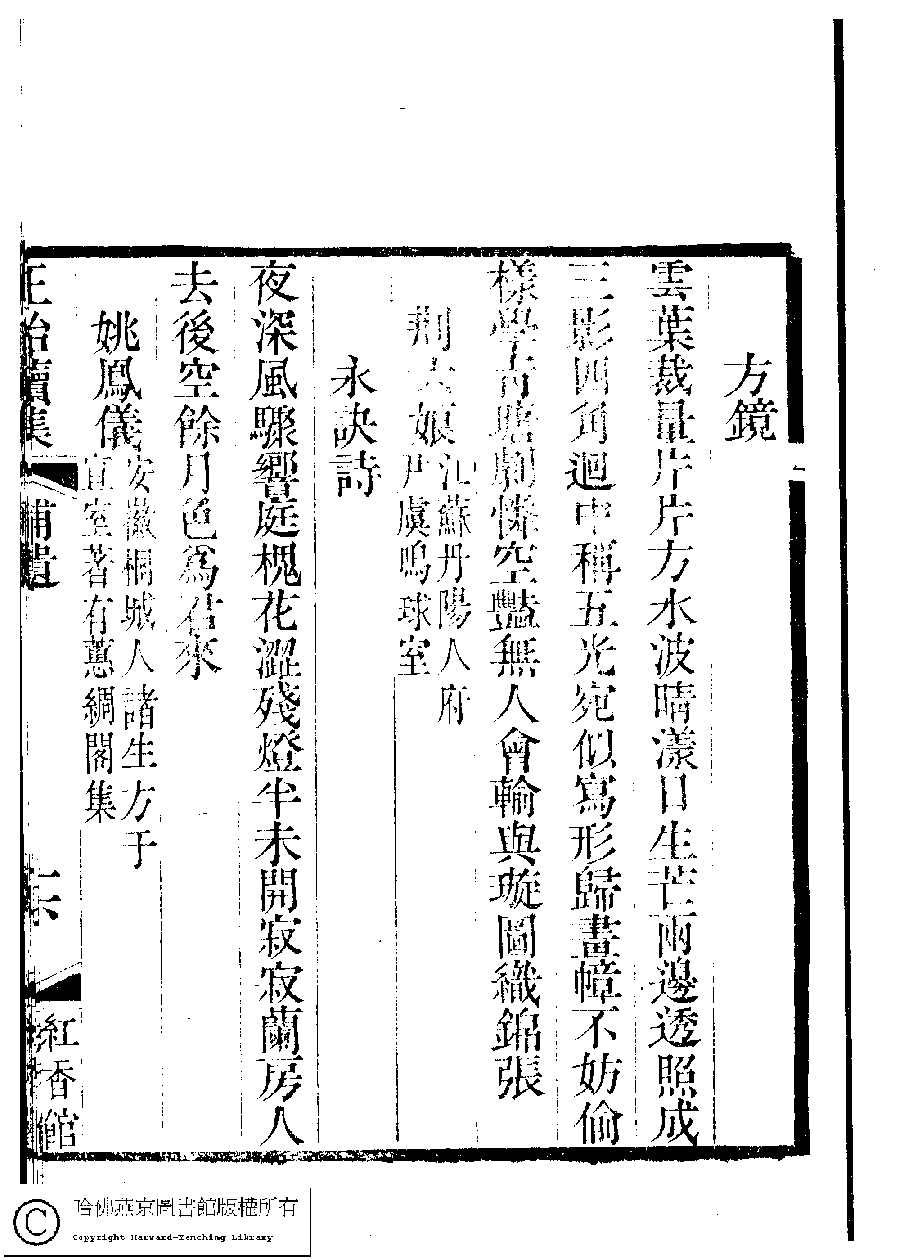 方鏡
雲葉裁量片片方水波晴漾日生芒兩邊透照成
三影四角迴中稱五光宛似寫形歸畫幛不妨偷
樣學古粧劇憐空豔無人會輸與璇圖織錦張
荆大娘江蘇丹陽人府
尹虞鳴球室
永訣詩
夜深風驟響庭槐花澀殘燈半未開寂寂蘭房人
去後空餘月色爲君來
姚鳳儀安徽桐城人諸生方于
宣室著有蕙綢閣集
正始續集
補遺
紅香館
哈佛燕京圖書館版權所有
Copyright Harvard-Yenching Library